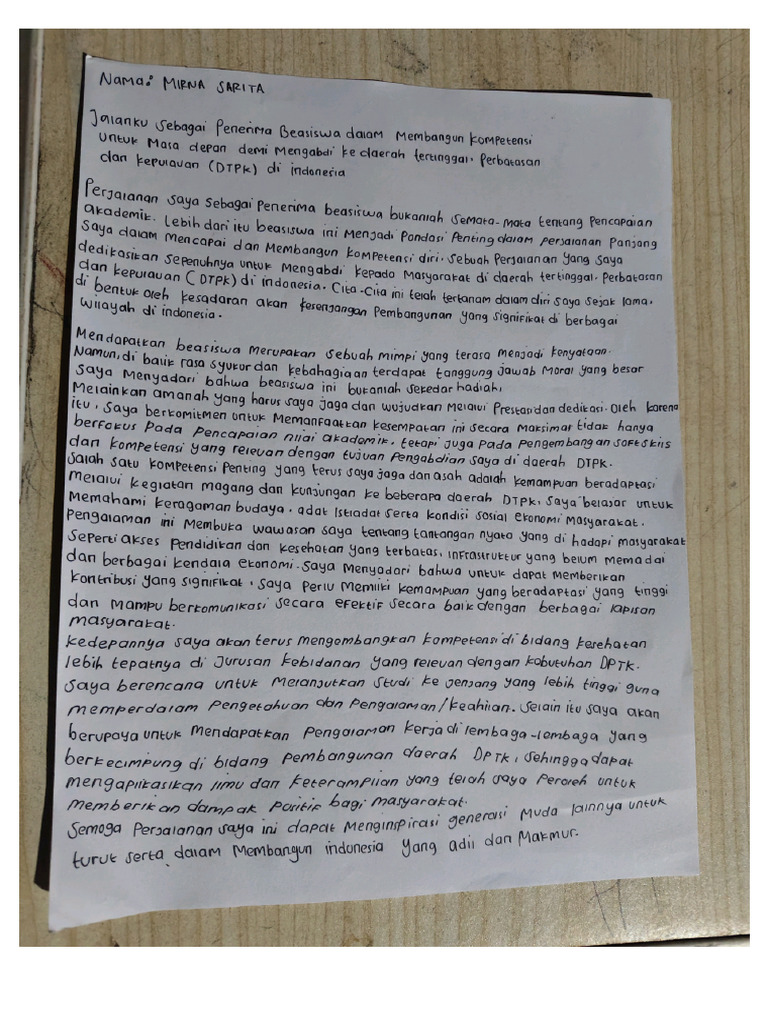 Nama: MIRNA SARITA
Jalanku sebagai Penerima Beasiswa dalam Membangun Kompetensi
untuk Masa depan demi Mengabdi ke daerah tertinggal. Perbatasan
dan kepulauan (DTPK) di indonesia
Perjalanan saya sebagai Penerima beasiswa bukanlah semata-mata tentang Pencapaian
akademik. Lebih dari itu beasiswa ini Menjadi Pondasi Penting dalam perjalanan Panjang
saya dalam Mencapai dan Membangun kompetensi diri. sebuah Perjalanan yang saya
dedikasikan sepenuhnya untuk Mengabdi kepada Masyarakat di daerah tertinggal. Perbatasan
dan kepulauan (DTPK) di indonesia. Cita-Cita ini telah tertanam dalam diri saya sejak lama.
di bentuk oleh kesadaran akan kesenjangan Pembangunan yang signifikat di berbagai
wilayah di indonesia.
Mendapatkan beasiswa Merupakan sebuah mimpi yang terasa Menjadi kenyataan.
Namun, di balik rasa syukur dan kebahagiaan terdapat tanggung jawab Moral yang besar
saya Menyadari bahwa beasiswa ini bukanlah sekedar hadiah,
Melainkan amanah yang harus saya jaga dan wujudkan melalui Prestasi dan dedikasi. Oleh karena
itu, saya berkomitmen untuk Memanfaatkan kesempatan ini secara Maksimal tidak hanya
berfokus Pada Pencapaian nilai akademik, tetapi juga Pada Pengembangan softskils
dan kompetensi yang relevan dengan tujuan Pengabdian saya di daerah DTPK.
Salah satu kompetensi Penting yang terus saya jaga dan asah adalah kemampuan beradaptasi
Melalui kegiatan magang dan kunjungan ke beberapa daerah DTPK, saya belajar untuk
Memahami keragaman budaya, adat istiadat serta kondisi sosial ekonomi Masyarakat.
Pengalaman ini Membuka wawasan saya tentang tantangan nyata yang di hadapi masyarakat
seperti akses Pendidikan dan kesehatan yang terbatas, infrastruktur yang belum Memadai
dan berbagai kendala ekonomi. Saya Menyadari bahwa untuk dapat Memberikan
kontribusi yang signifikat, saya Perlu Memiliki kemampuan yang beradaptasi yang tinggi
dan Mampu berkomunikasi secara efektif secara baik dengan berbagai lapisan
masyarakat.
Kedepannya saya akan terus mengembangkan kompetensi di bidang kesehatan
lebih tepatnya di Jurusan kebidanan yang relevan dengan kabutuhan DPTK.
Saya berencana untuk Melanjutkan studi ke jenjang yang lebih tinggi guna
memperdalam Pengetahuan dan Pengalaman/keahlian. Selain itu saya akan
berupaya untuk mendapatkan Pengalaman kerja di lembaga-lembaga yang
berkecimpung di bidang Pembangunan daerah DPTK, sehingga dapat
mengaplikasikan ilmu dan keterampilan yang telah saya Peroleh untuk
memberikan dampak Positif bagi masyarakat.
Semoga Perjalanan saya ini dapat Menginspirasi generasi Muda lainnya untuk
turut serta dalam Membangun indonesia yang adil dan Makmur.